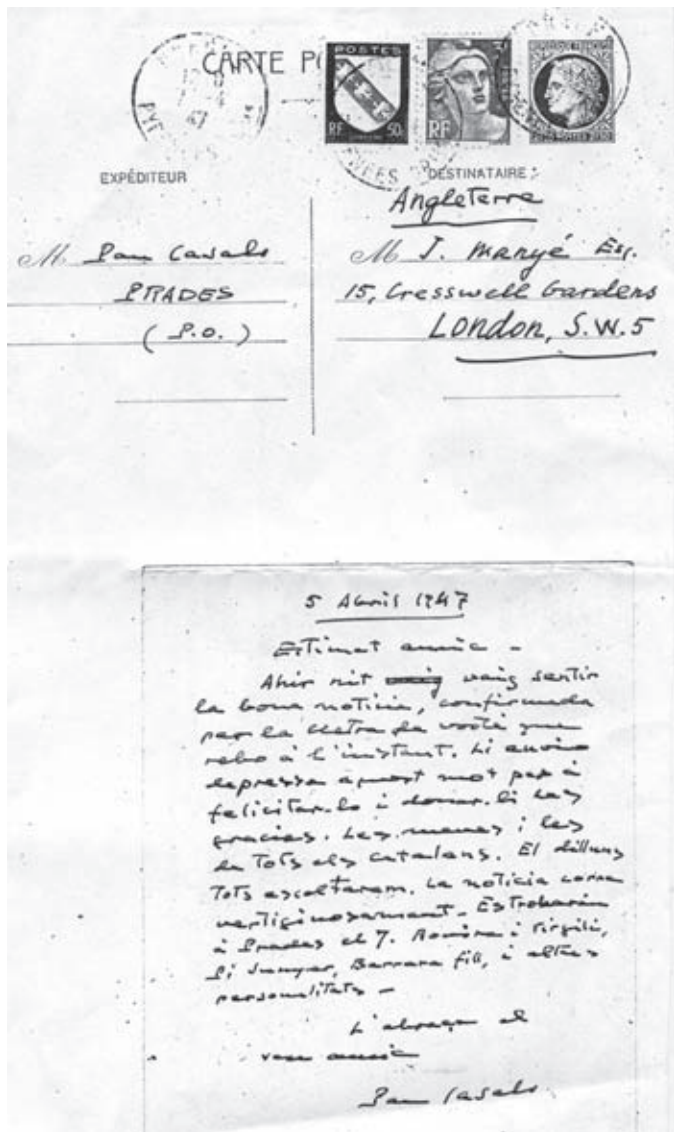 CARTE PO
POSTES
RF 50c
RF
EXPÉDITEUR
DESTINATAIRE
Angleterre
M Pau Casals
M J. Manyé Esq.
PRADES
15, Cresswell Gardens
( P.O. )
London, S.W.5
5 Abril 1947
Estimat amic -
Ahir nit vaig sentir
la bona noticia, confirmada
per la lletra de vosté que
rebo à l'instant. Li envio
depressa aquest mot per à
felicitar-lo i donar-li les
gracias. Les meves i les
de Tots els catalans. El dilluns
Tots escoltarem. La noticia corre
vertiginosament. Es trobarán
à Prades el 7. Rovira i Virgili,
Pi Sunyer, Barrera fill, i altres
personalitats -
L'abraça el
seu amic
Pau Casals